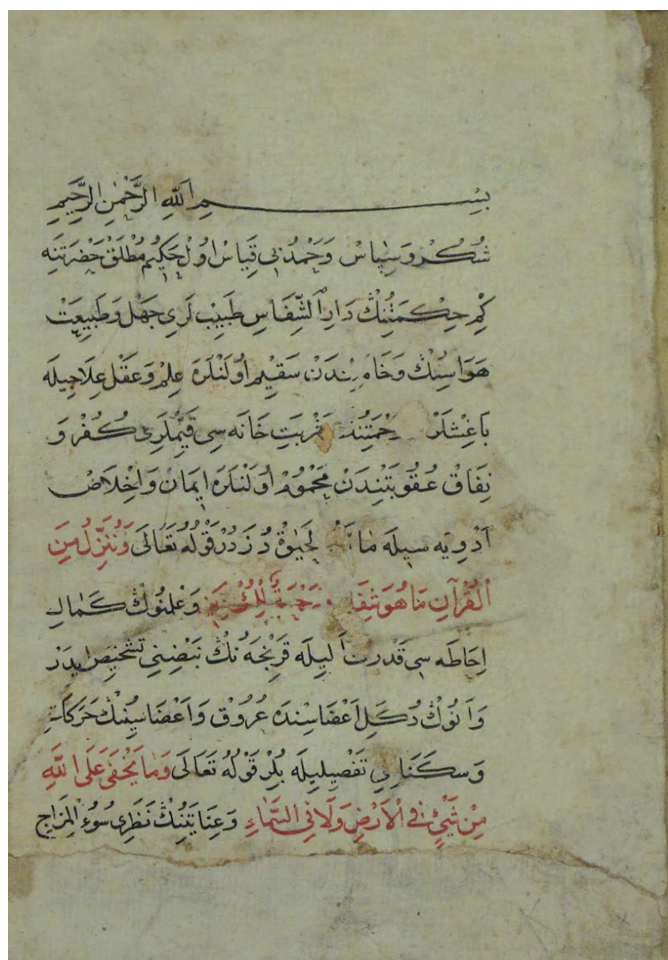 بِسْمِ اللّٰهِ الرَّحْمٰنِ الرَّحِيمِ
شُكْرُ وَسِپَاسْ وَحَمْدُ بِي قِيَاسْ اُولْ حَكِيمِ مُطْلَقْ حَضْرَتِنَه
كِمْ حِكْمَتُنِكْ دَارِ الشِّفَاسِ طَبِيبْ لَرِى جَهْل وَطَبِيعَتْ
هَوَاسِنِكْ سَقِيمْ اُولَنْلَرَه عِلِمْ وَعَقْل عِلَاجِيلَه
بَاغِشْلَرْ شَرْبَتِ خَانَه سِى قَيُّمْلَرِى كُفْر وَ
نِفَاقْ عُقُوبَتِنْدَنْ مَحْمُومْ اُولَنْلَرَه اِيمَانْ وَاِخْلَاصْ
اَدْوِيَه سِيلَه دُزَدُرْ قَوْلُهُ تَعَالَى وَنُنَزِّلُ مِنَ
الْقُرْآنِ مَا هُوَ شِفَاءٌ وَرَحْمَةٌ لِلْمُؤْمِنِينَ وَعِلْمِنُوكْ كَمَالِ
اِحَاطَه سِى قُدْرَتِ اَلِيلَه قَرِنْجَه نُكْ نَبْضِنِى تَشْخِيصْ ايدَرْ
وَاَنُوكْ دُكَلِ اَعْضَاسِنْدَه عُرُوقْ وَاَعْضَاسِنِكْ حَرَكَاتِ
وَسَكَنَاتِى تَفْصِيلِيلَه بِلُرْ قَوْلُهُ تَعَالَى وَمَا يَخْفَى عَلَى اللّٰهِ
مِنْ شَيْءٍ فِي الْاَرْضِ وَلَا فِي السَّمَاءِ وَعِنَايَتِنُكْ نَظَرِى سُوءُ الْمِزَاجِ